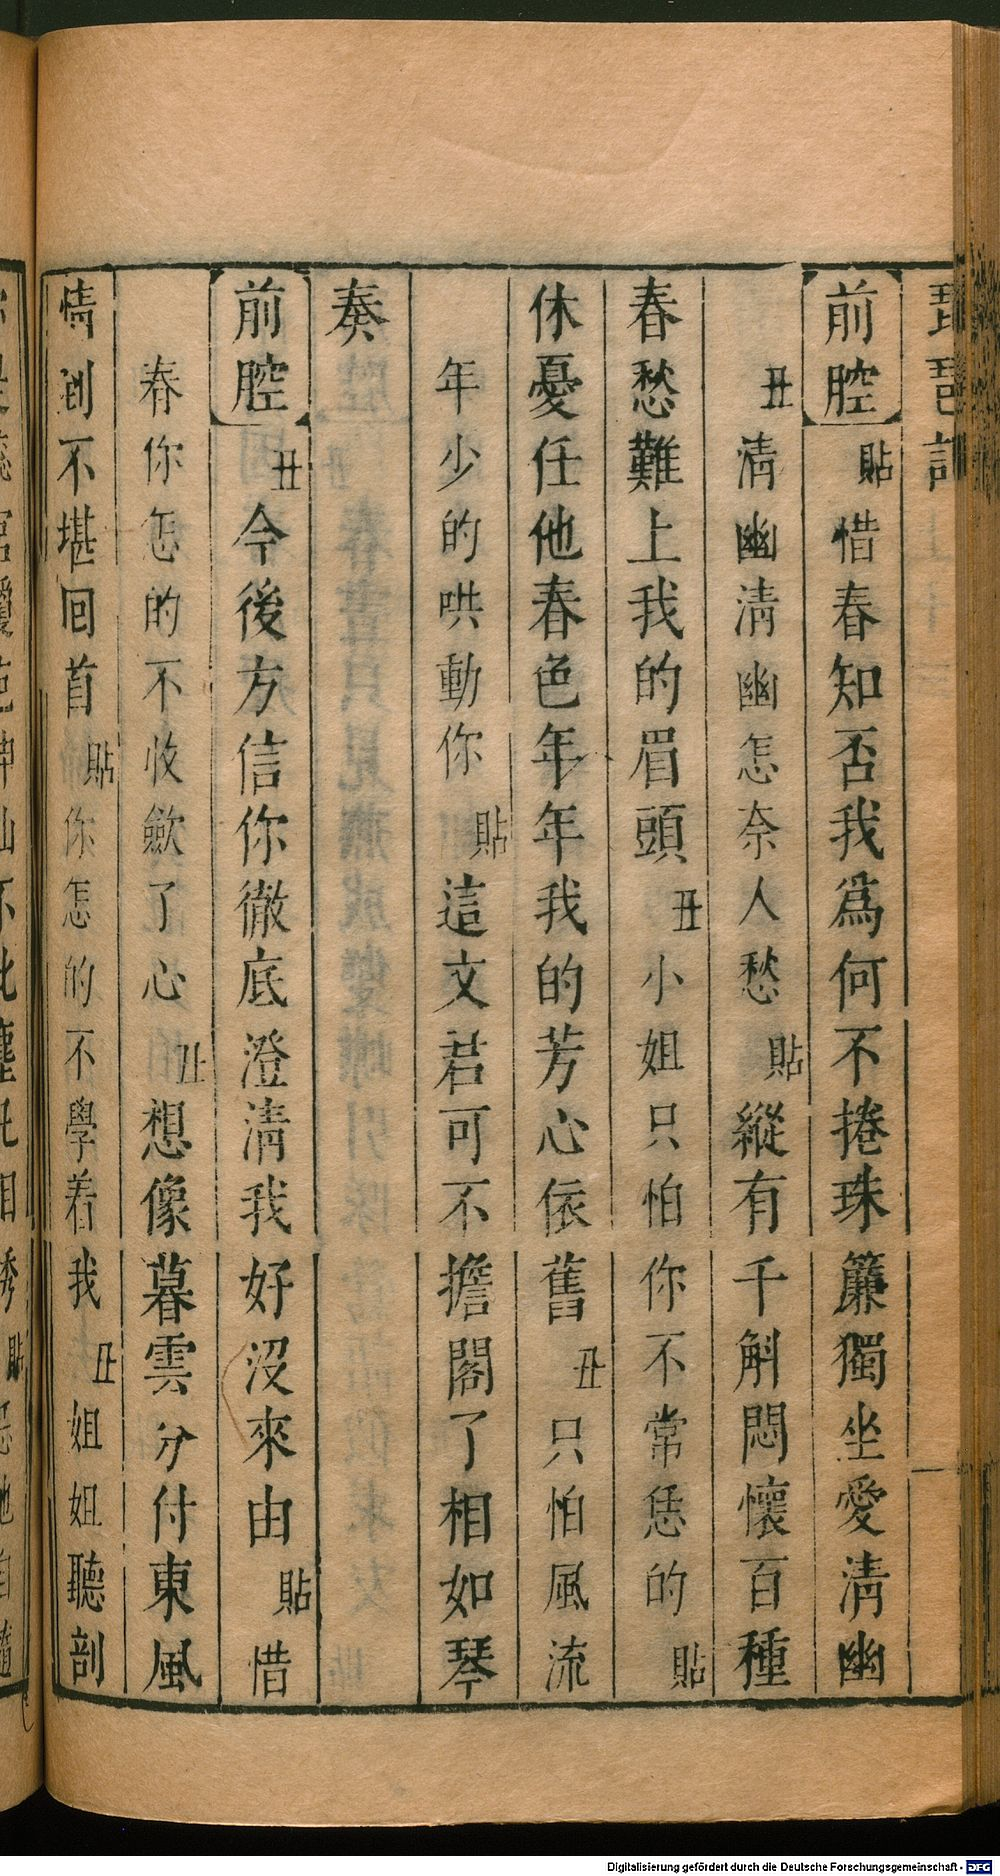 琵琶記
前腔 貼 惜春知否我爲何不捲珠簾獨坐愛清幽
丑 清幽清幽怎奈人愁 貼 縱有千斛悶懷百種
春愁難上我的眉頭 丑 小姐只怕你不常恁的 貼
休憂任他春色年年我的芳心依舊 丑 只怕風流
年少的哄動你 貼 這文君可不擔閣了相如琴
奏
前腔 丑 今後方信你徹底澄清我好沒來由 貼 惜
春你怎的不收斂了心 丑 想像暮雲分付東風
情到不堪回首 貼 你怎的不學着我 丑 姐姐聽剖
Digitalisierung gefördert durch die Deutsche Forschungsgemeinschaft - DFG